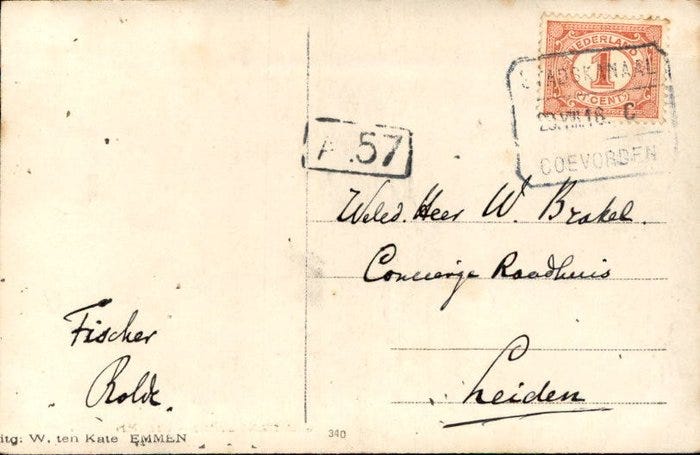 NEDERLAND
1
CENT
STADSKANAAL
23.VIII.16. C
COEVORDEN
A.57
Weled. Heer W. Brakel.
Concierge Raadhuis
Leiden
Fischer
Rolde.
itg: W. ten Kate EMMEN
340